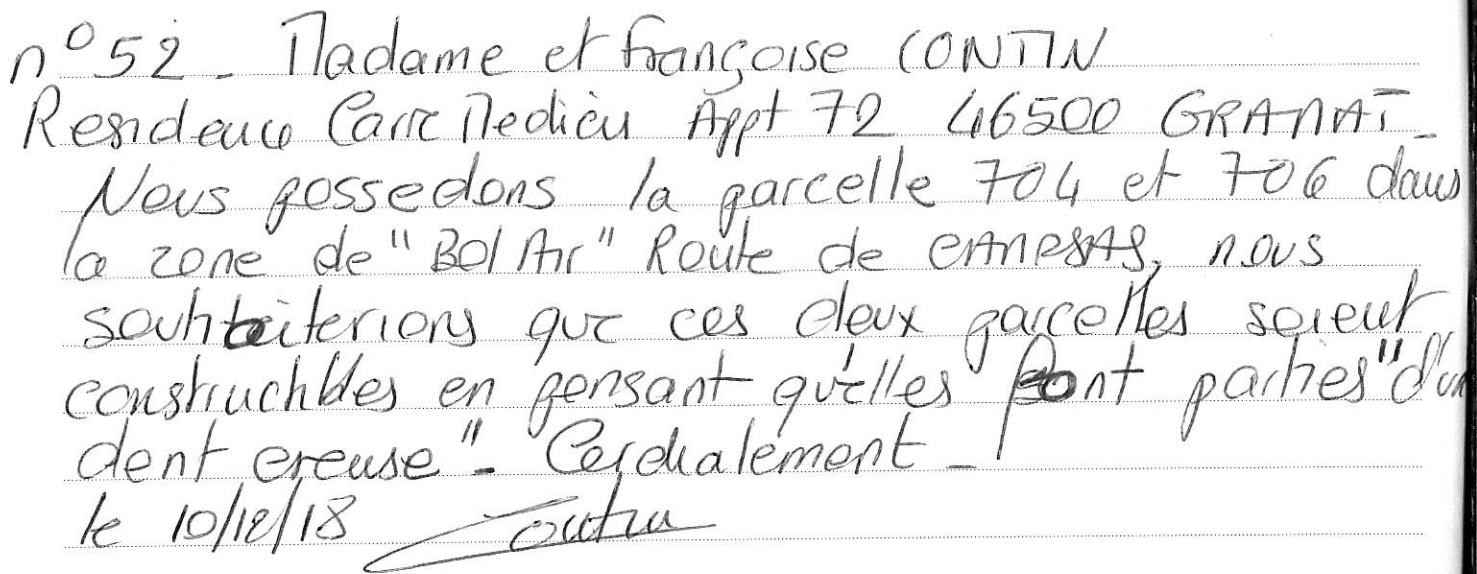 n°52 - Madame et Françoise CONTIN
Residence Carre Medicis Appt 72 46500 GRAMAT -
Nous possedons la parcelle 704 et 706 dans
la zone de "Bel Air" Route de
nous
souhaiterions que ces deux parcelles soient
constructibles en pensant qu'elles font parties "d'un
dent creuse" - Cordialement -
le 10/12/18 Contin